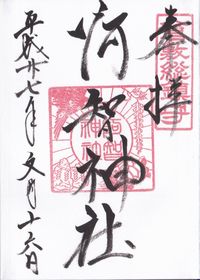 奉拝
阿智神社
平成廿七年文月十六日
阿智
神社